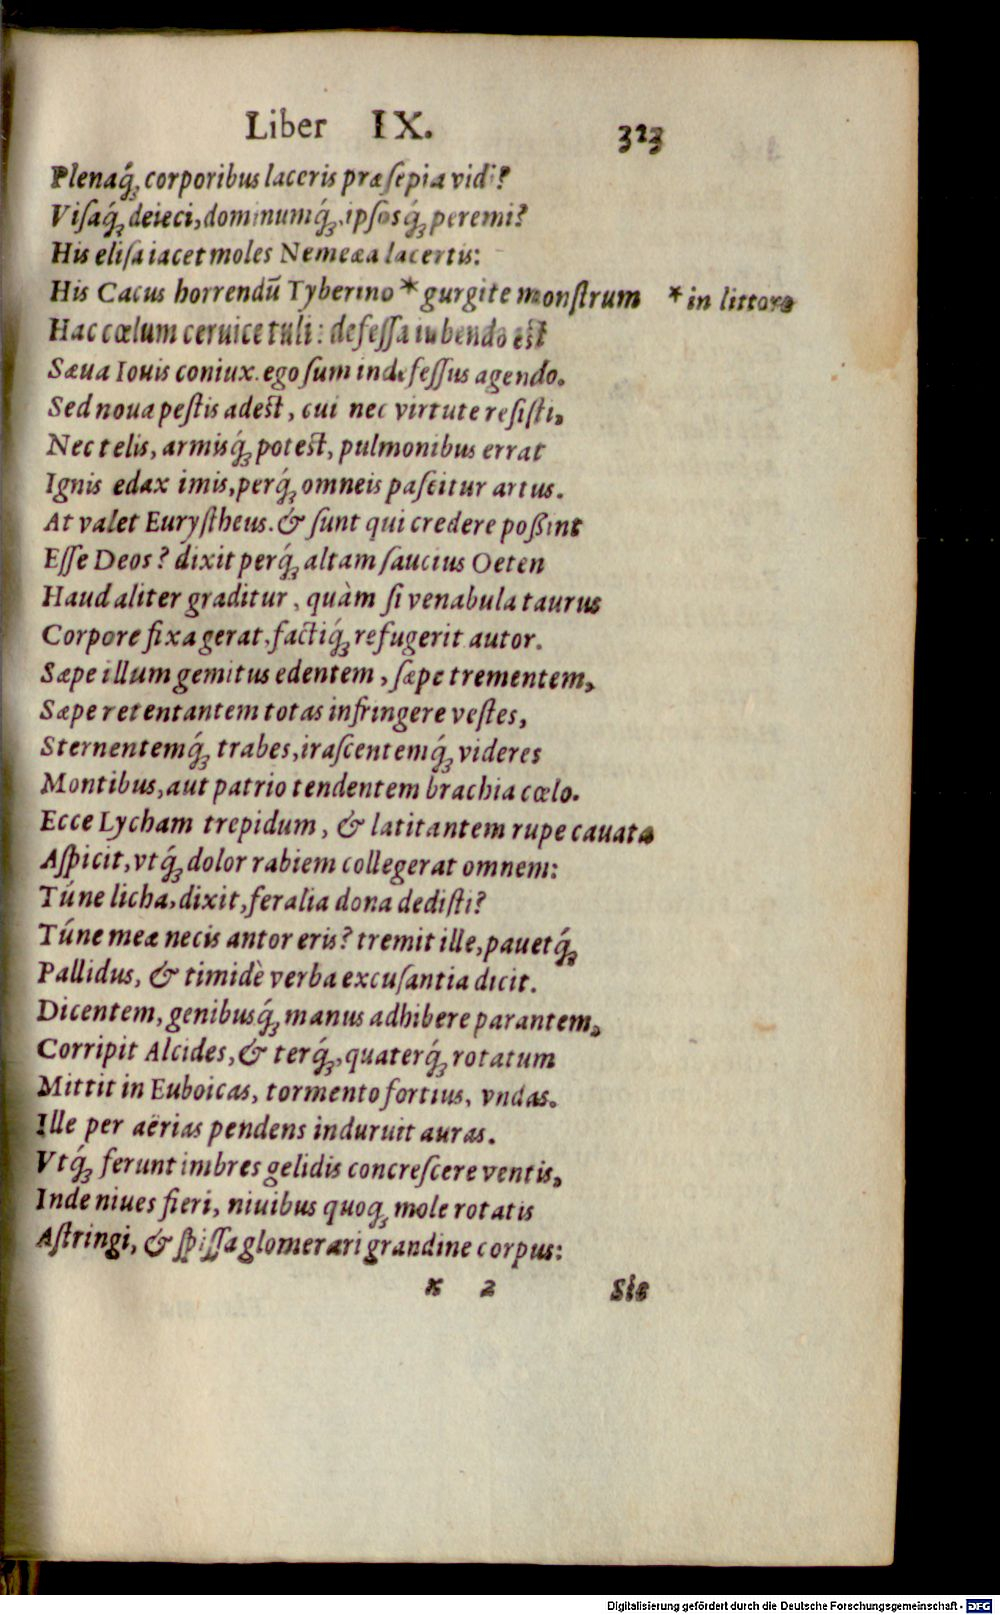 Liber IX. 323
Plenaq́ꝫ corporibus laceris præſepia vidi?
Viſaq́ꝫ deieci, dominumq́ꝫ, ipſosq́ꝫ peremi?
His eliſa iacet moles Nemeæa lacertis:
His Cacus horrendũ Tyberino * gurgite monſtrum * in littore
Hac cœlum ceruice tuli: defeſſa iubendo est
Sæua Iouis coniux. ego ſum indefeſſus agendo.
Sed noua peſtis adest, cui nec virtute reſiſti,
Nec telis, armisq́ꝫ potest, pulmonibus errat
Ignis edax imis, perq́ꝫ omneis paſcitur artus.
At valet Euryſtheus. & ſunt qui credere poßint
Eſſe Deos? dixit perq́ꝫ altam ſaucius Oeten
Haud aliter graditur, quàm ſi venabula taurus
Corpore fixa gerat, factiq́ꝫ refugerit autor.
Sæpe illum gemitus edentem, ſæpe trementem,
Sæpe retentantem totas infringere veſtes,
Sternentemq́ꝫ trabes, iraſcentemq́ꝫ videres
Montibus, aut patrio tendentem brachia cœlo.
Ecce Lycham trepidum, & latitantem rupe cauata
Aſpicit, vtq́ꝫ dolor rabiem collegerat omnem:
Túne licha, dixit, feralia dona dediſti?
Túne meæ necis antor eris? tremit ille, pauetq́ꝫ
Pallidus, & timidè verba excuſantia dicit.
Dicentem, genibusq́ꝫ manus adhibere parantem,
Corripit Alcides, & terq́ꝫ, quaterq́ꝫ rotatum
Mittit in Euboicas, tormento fortius, vndas.
Ille per aërias pendens induruit auras.
Vtq́ꝫ ferunt imbres gelidis concreſcere ventis,
Inde niues fieri, niuibus quoqꝫ mole rotatis
Aſtringi, & ſpiſſa glomerari grandine corpus:
x 2 Sic
Digitalisierung gefördert durch die Deutsche Forschungsgemeinschaft - DFG